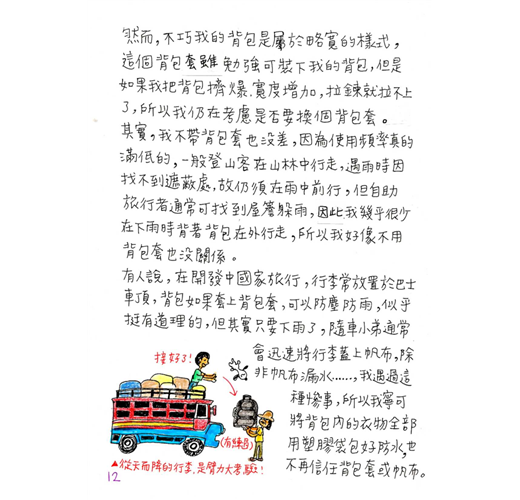 然而，不巧我的背包是屬於略寬的樣式，
這個背包套雖勉強可裝下我的背包，但是
如果我把背包擠爆，寬度增加，拉鍊就拉不上
了，所以我仍在考慮是否要換個背包套。
其實，我不帶背包套也沒差，因為使用頻率真的
滿低的，一般登山客在山林中行走，遇雨時因
找不到遮蔽處，故仍須在雨中前行，但自助
旅行者通常可找到屋簷躲雨，因此我幾乎很少
在下雨時背著背包在外行走，所以我好像不用
背包套也沒關係。
有人說，在開發中國家旅行，行李常放置於巴士
車頂，背包如果套上背包套，可以防塵防雨，似乎
挺有道理的，但其實只要下雨了，隨車小弟通常
會迅速將行李蓋上帆布，除
非帆布漏水……，我遇過這
種慘事，所以我寧可
將背包內的衣物全部
用塑膠袋包好防水，也
不再信任背包套或帆布。
接好了！
(有練過)
▲從天而降的行李，是臂力大考驗！
12